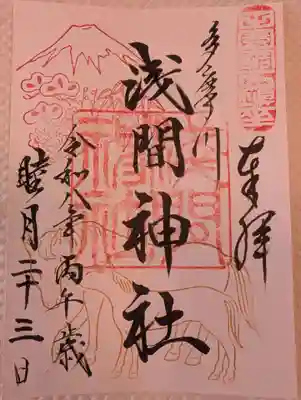 奉拝
多摩川
浅間神社
令和八年 丙午歳
睦月二十三日